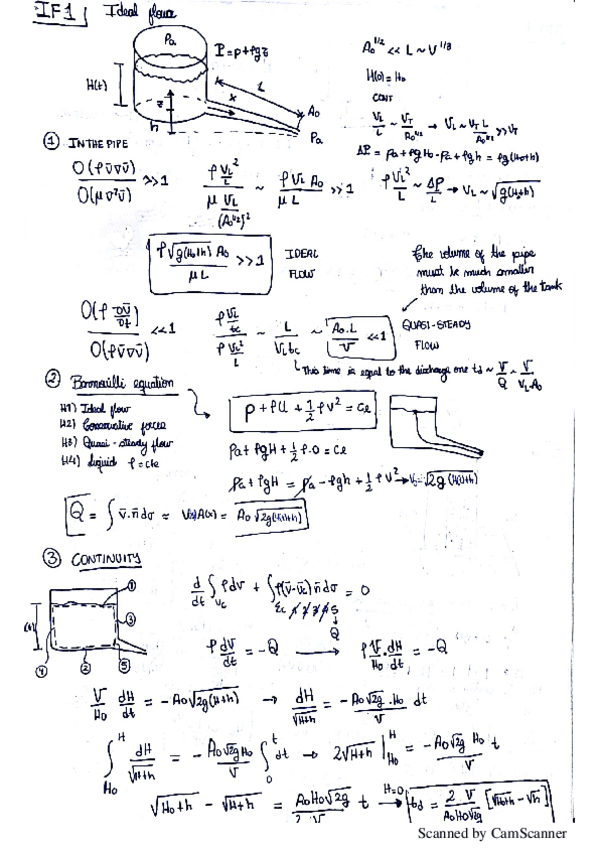 IF1 | Ideal flow
Pa
P = p + ρgz
H(t)
L
x
z
h
A₀
Pa
A₀^1/2 << L ~ V^1/3
H(0) = H₀
CONT
V_L/L ~ V_T/A₀^1/2 → V_L ~ V_T L/A₀^1/2 >> V_T
ΔP = Pa + ρgH₀ - Pa + ρgh = ρg(H₀+h)
ρV_L²/L ~ ΔP/L → V_L ~ √g(H₀+h)
① IN THE PIPE
O(ρv̄∇v̄)/O(μ∇²v̄) >> 1
ρV_L²/L / μV_L/(A₀^1/2)² ~ ρV_L A₀/μL >> 1
ρ√g(H₀+h) A₀/μL >> 1 IDEAL FLOW
The volume of the pipe
must be much smaller
than the volume of the tank
O(ρ ∂v̄/∂t)/O(ρv̄∇v̄) << 1
ρV_L/tc / ρV_L²/L ~ L/V_L tc ~ A₀·L/V << 1 QUASI-STEADY FLOW
This time is equal to the discharge one td ~ V/Q ~ V/V_L A₀
② Bernouilli equation
H1) Ideal flow
H2) Conservative forces
H3) Quasi-steady flow
H4) Liquid ρ = cte
p + ρU + 1/2 ρv² = Ce
Pa + ρgH + 1/2 ρ·0 = Ce
Pa + ρgH = Pa - ρgh + 1/2 ρV² → V = √2g(H+h)
Q = ∫ v̄·n̄dσ ≈ V(x)A(x) = A₀√2g(H+h)
③ CONTINUITY
①
③
④
②
⑤
d/dt ∫_Vc ρdV + ∫ρ(v̄-v̄c)n̄dσ = 0
Σc 1 2 3 4 5
Q
ρ dV/dt = -Q → ρ V/H₀ · dH/dt = -Q
V/H₀ dH/dt = -A₀√2g(H+h) → dH/√H+h = -A₀√2g·H₀/V dt
∫_H₀^H dH/√H+h = -A₀√2g H₀/V ∫₀^t dt → 2√H+h |_H₀^H = -A₀√2g H₀/V t
√H₀+h - √H+h = A₀H₀√2g/2V t → H=0 td = 2V/A₀H₀√2g [√H₀+h - √h]
Scanned by CamScanner